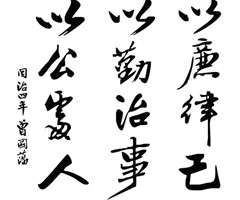 以廉律己
以勤治事
以公處人
同治四年 曾國藩